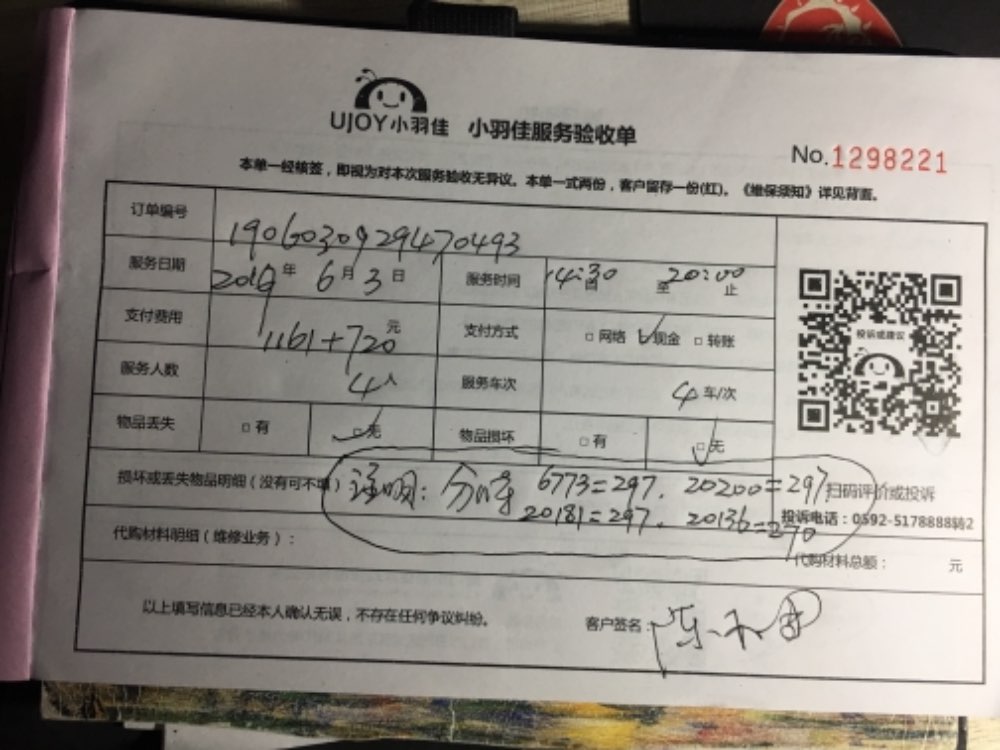 UJOY小羽佳 小羽佳服务验收单
No.1298221
本单一经核签，即视为对本次服务验收无异议。本单一式两份，客户留存一份(红)。《维保须知》详见背面。
订单编号 1906030929470493
服务日期 2019年 6月 3日 服务时间 14:30 至 20:00 止
支付费用 1161+720元 支付方式 □网络 □现金 □转账
投诉或建议
服务人数 4人 服务车次 4车/次
物品丢失 □有 □无 物品损坏 □有 □无
损坏或丢失物品明细（没有可不填） 注明：分时 6773=297. 20200=297.
扫码评价或投诉
20181=297. 20136=270
投诉电话：0592-5178888转2
代购材料明细（维修业务）：
代购材料总额： 元
以上填写信息已经本人确认无误，不存在任何争议纠纷。 客户签名：陈